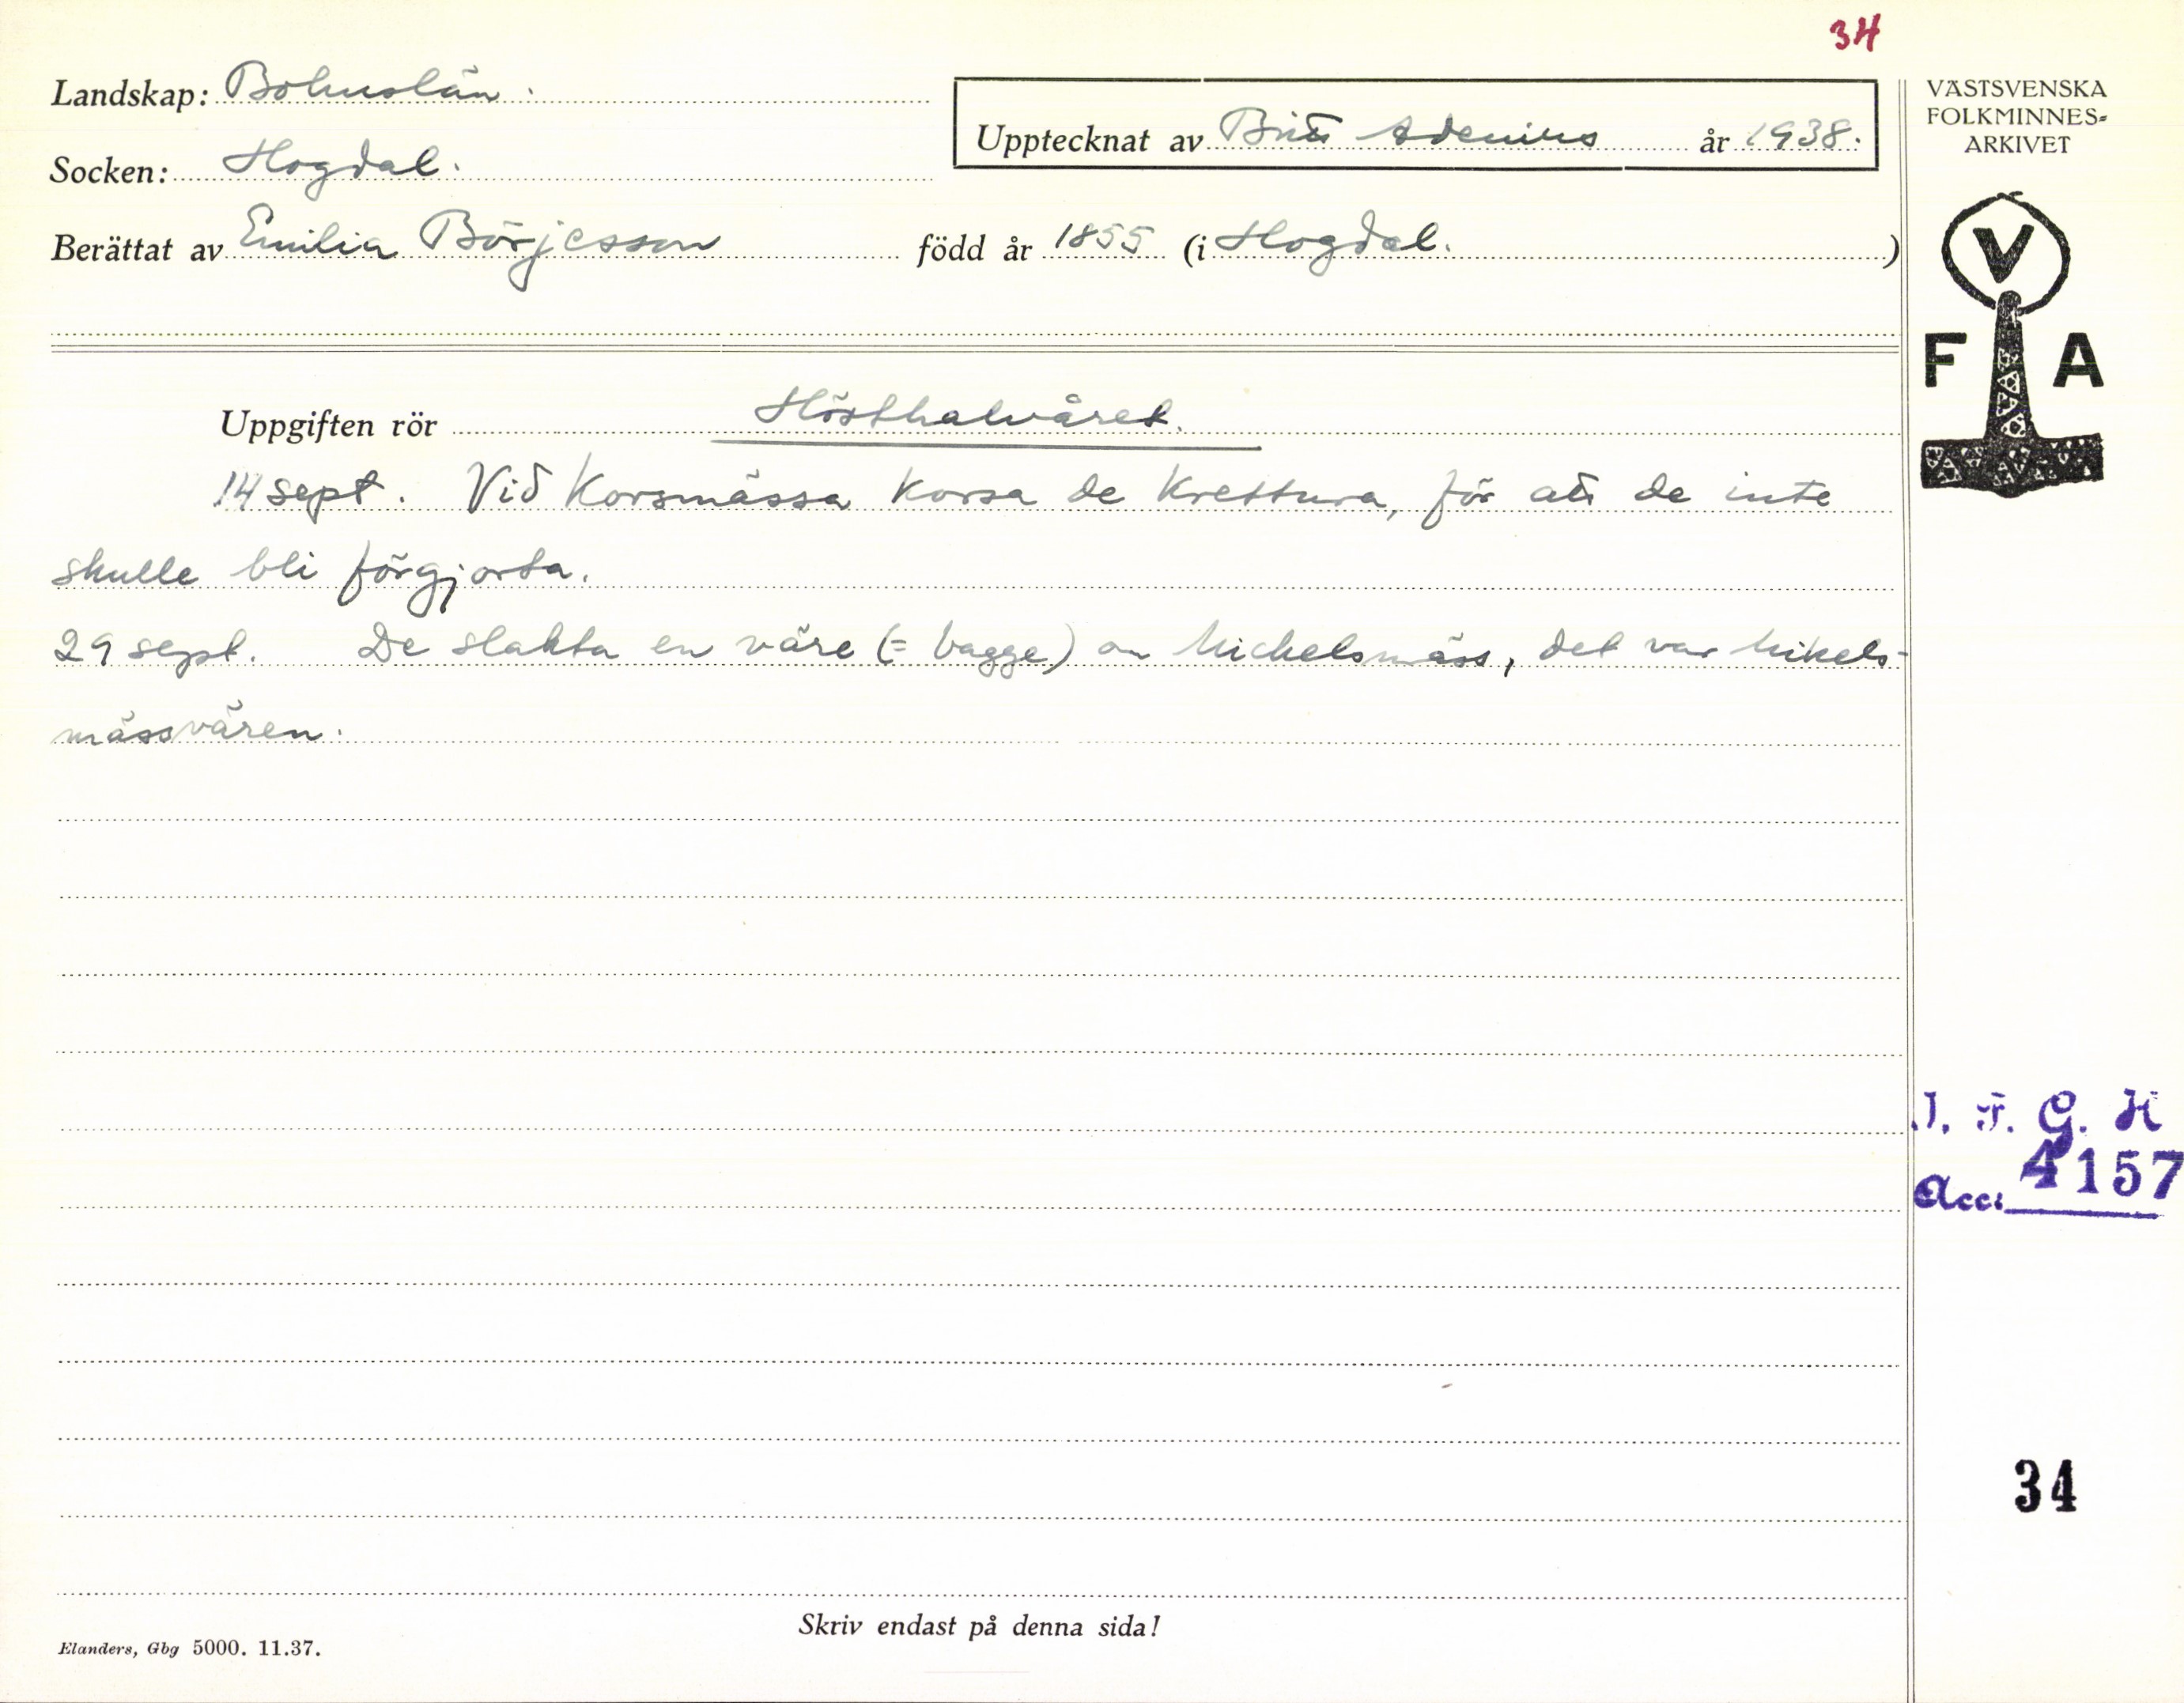 34
Landskap: Bohuslän.
Socken: Hogdal.
Upptecknat av Britt Adenius år 1938.
Berättat av Emilia Börjesson född år 1855 (i Hogdal.)
VÄSTSVENSKA
FOLKMINNES-
ARKIVET
V
F A
Uppgiften rör Hösthalvåret.
14 sept. Vid Korsmässa korsa de krettura, för att de inte
skulle bli förgjorta.
29 sept. De slakta en väre (= bagge) om Michelsmäss, det var Mikels-
mässvären.
I. F. G. H
Acc: 4157
34
Skriv endast på denna sida!
Elanders, Gbg 5000. 11.37.